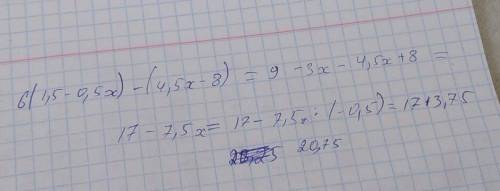 6(1,5-0,5x)-(4,5x-8) = 9 -3x - 4,5x+8 =
17 - 7,5x = 17 - 7,5x · (-0,5) = 17+3,75
20,75